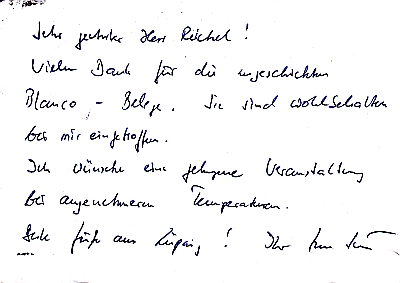 Sehr geehrter Herr Reichel!
Vielen Dank für die zugeschickten
Blanco-Belege. Sie sind wohlbehalten
bei mir eingetroffen.
Ich wünsche eine gelungene Veranstaltung
bei angenehmeren Temperaturen.
Grüße aus Leipzig! Ihr